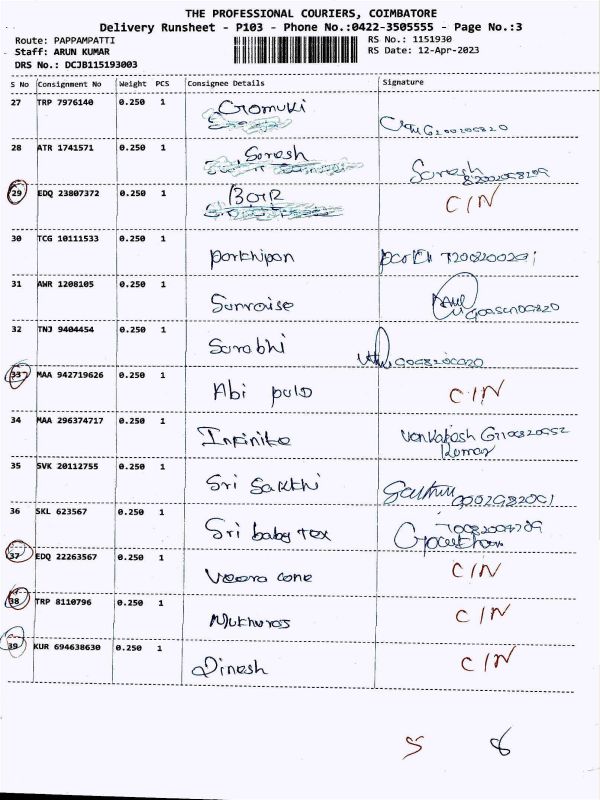 THE PROFESSIONAL COURIERS, COIMBATORE
Delivery Runsheet - P103 - Phone No.:0422-3505555 - Page No.:3
Route: PAPPAMPATTI RS No.: 1151930
Staff: ARUN KUMAR RS Date: 12-Apr-2023
DRS No.: DCJB115193003
S No Consignment No Weight PCS Consignee Details Signature
27 TRP 7976140 0.250 1 Gromuki
28 ATR 1741571 0.250 1 Soresh Soresh
29 EDQ 23807372 0.250 1 C/N
30 TCG 10111533 0.250 1 parthipan
31 AWR 1208105 0.250 1 Sunraise
32 TNJ 9404454 0.250 1 Sorabhi
33 MAA 942719626 0.250 1 Abi pulo C/N
34 MAA 296374717 0.250 1 Infinite
35 SVK 20112755 0.250 1 Sri Sakthi
36 SKL 623567 0.250 1 Sri baby tex
37 EDQ 22263567 0.250 1 Veera cone C/N
38 TRP 8110796 0.250 1 Muthuras C/N
39 KUR 694638630 0.250 1 Dinesh C/N
5 8